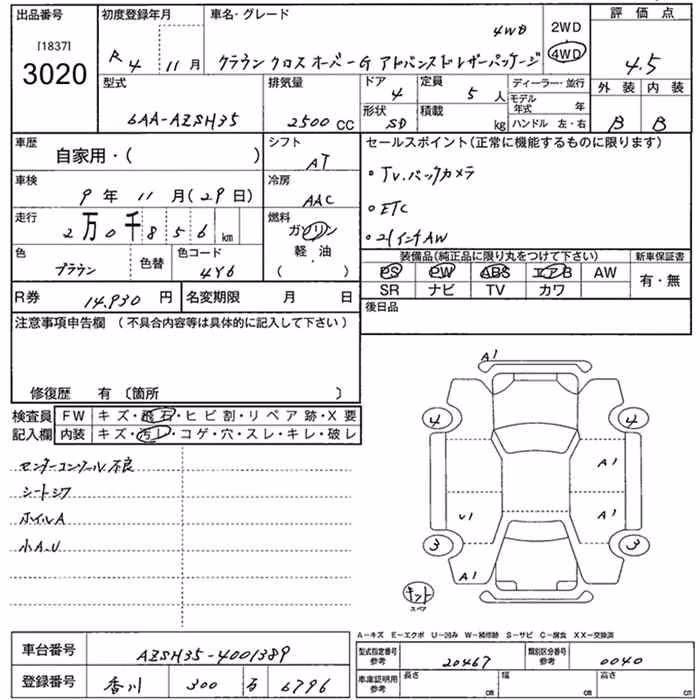 出品番号 初度登録年月 車名・グレード 評価点
[1837] 3020
R 4 11 月 クラウン クロスオーバーG アドバンストレザーパッケージ 4WD
2WD
4WD
4.5
型式 排気量 ドア 定員 ディーラー・並行 外装 内装
6AA-AZSH35 2500 CC 4 5 人 モデル年式 年
形状 積載 ハンドル 左・右
SD kg B B
車歴 シフト セールスポイント(正常に機能するものに限ります)
自家用・( ) AT
・TV.バックカメラ
車検 冷房
9 年 11 月(29日) AAC
・ETC
走行 燃料
2 万 0 千 8 5 6 km ガソリン
・21インチAW
軽・油
( )
色 色替 色コード
ブラウン 4Y6
装備品(純正品に限り丸をつけて下さい) 新車保証書
PS PW ABS エアB AW 有・無
SR ナビ TV カワ
R券 14,930 円 名変期限 月 日
後日品
注意事項申告欄 (不具合内容等は具体的に記入して下さい)
修復歴 有 〔箇所 〕
検査員 FW キズ・飛石・ヒビ割・リペア跡・X要
記入欄 内装 キズ・汚レ・コゲ・穴・スレ・キレ・破レ
センターコンソール不良
シートシワ
ホイルA
小A.U
A1
4 4
A1
U1 A1
3 3
A1
キット
スペア
A-キズ E-エクボ U-凹み W-補修跡 S-サビ C-腐食 XX-交換済
車台番号 AZSH35-4001389
型式指定番号 参考 20467 類別区分番号 参考 0040
登録番号 香川 300 6796
車庫証明用 参考 長さ cm 幅 cm 高さ cm